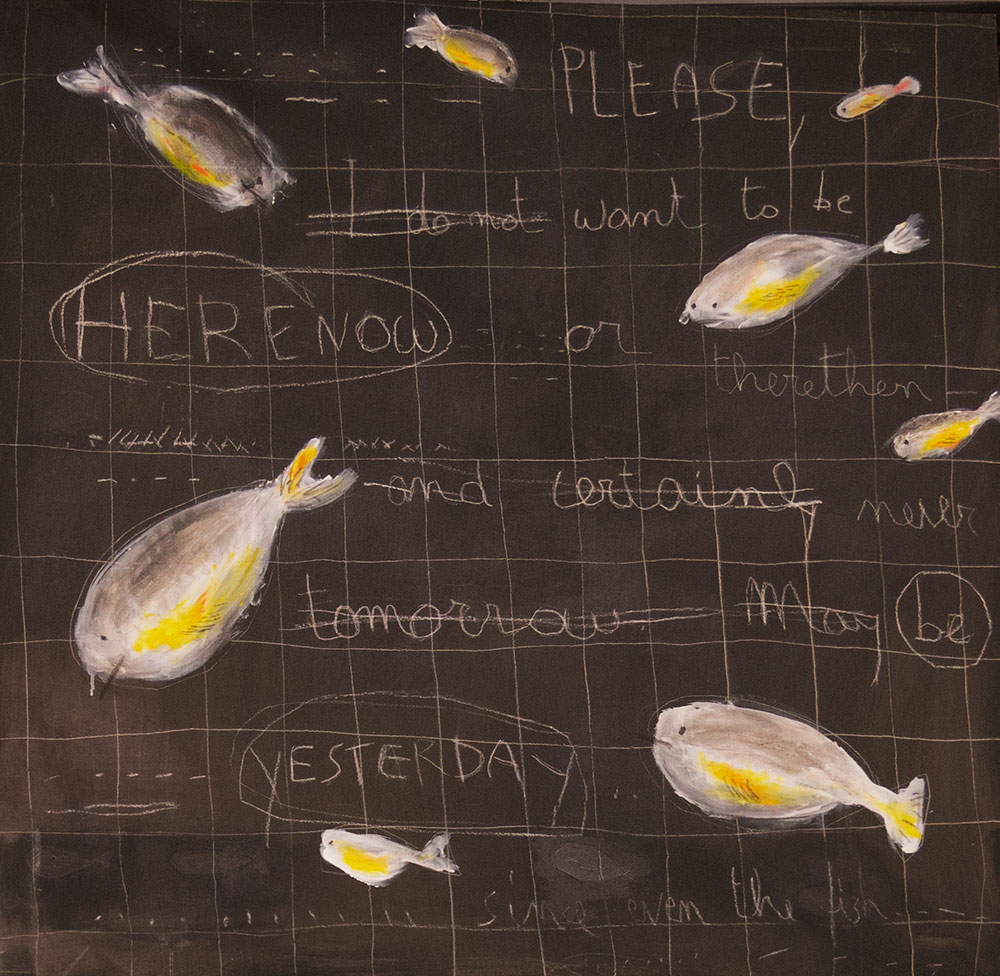 PLEASE,
I do not want to be
HERENOW or
therethen
and certainly never
tomorrow May be
YESTERDAY
since even the fish